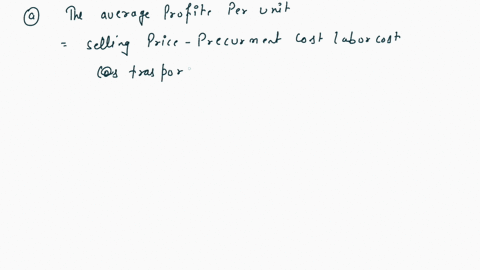 (a) The average Profite Per unit
= selling Price - Precurment cost labor cost
(os traspor